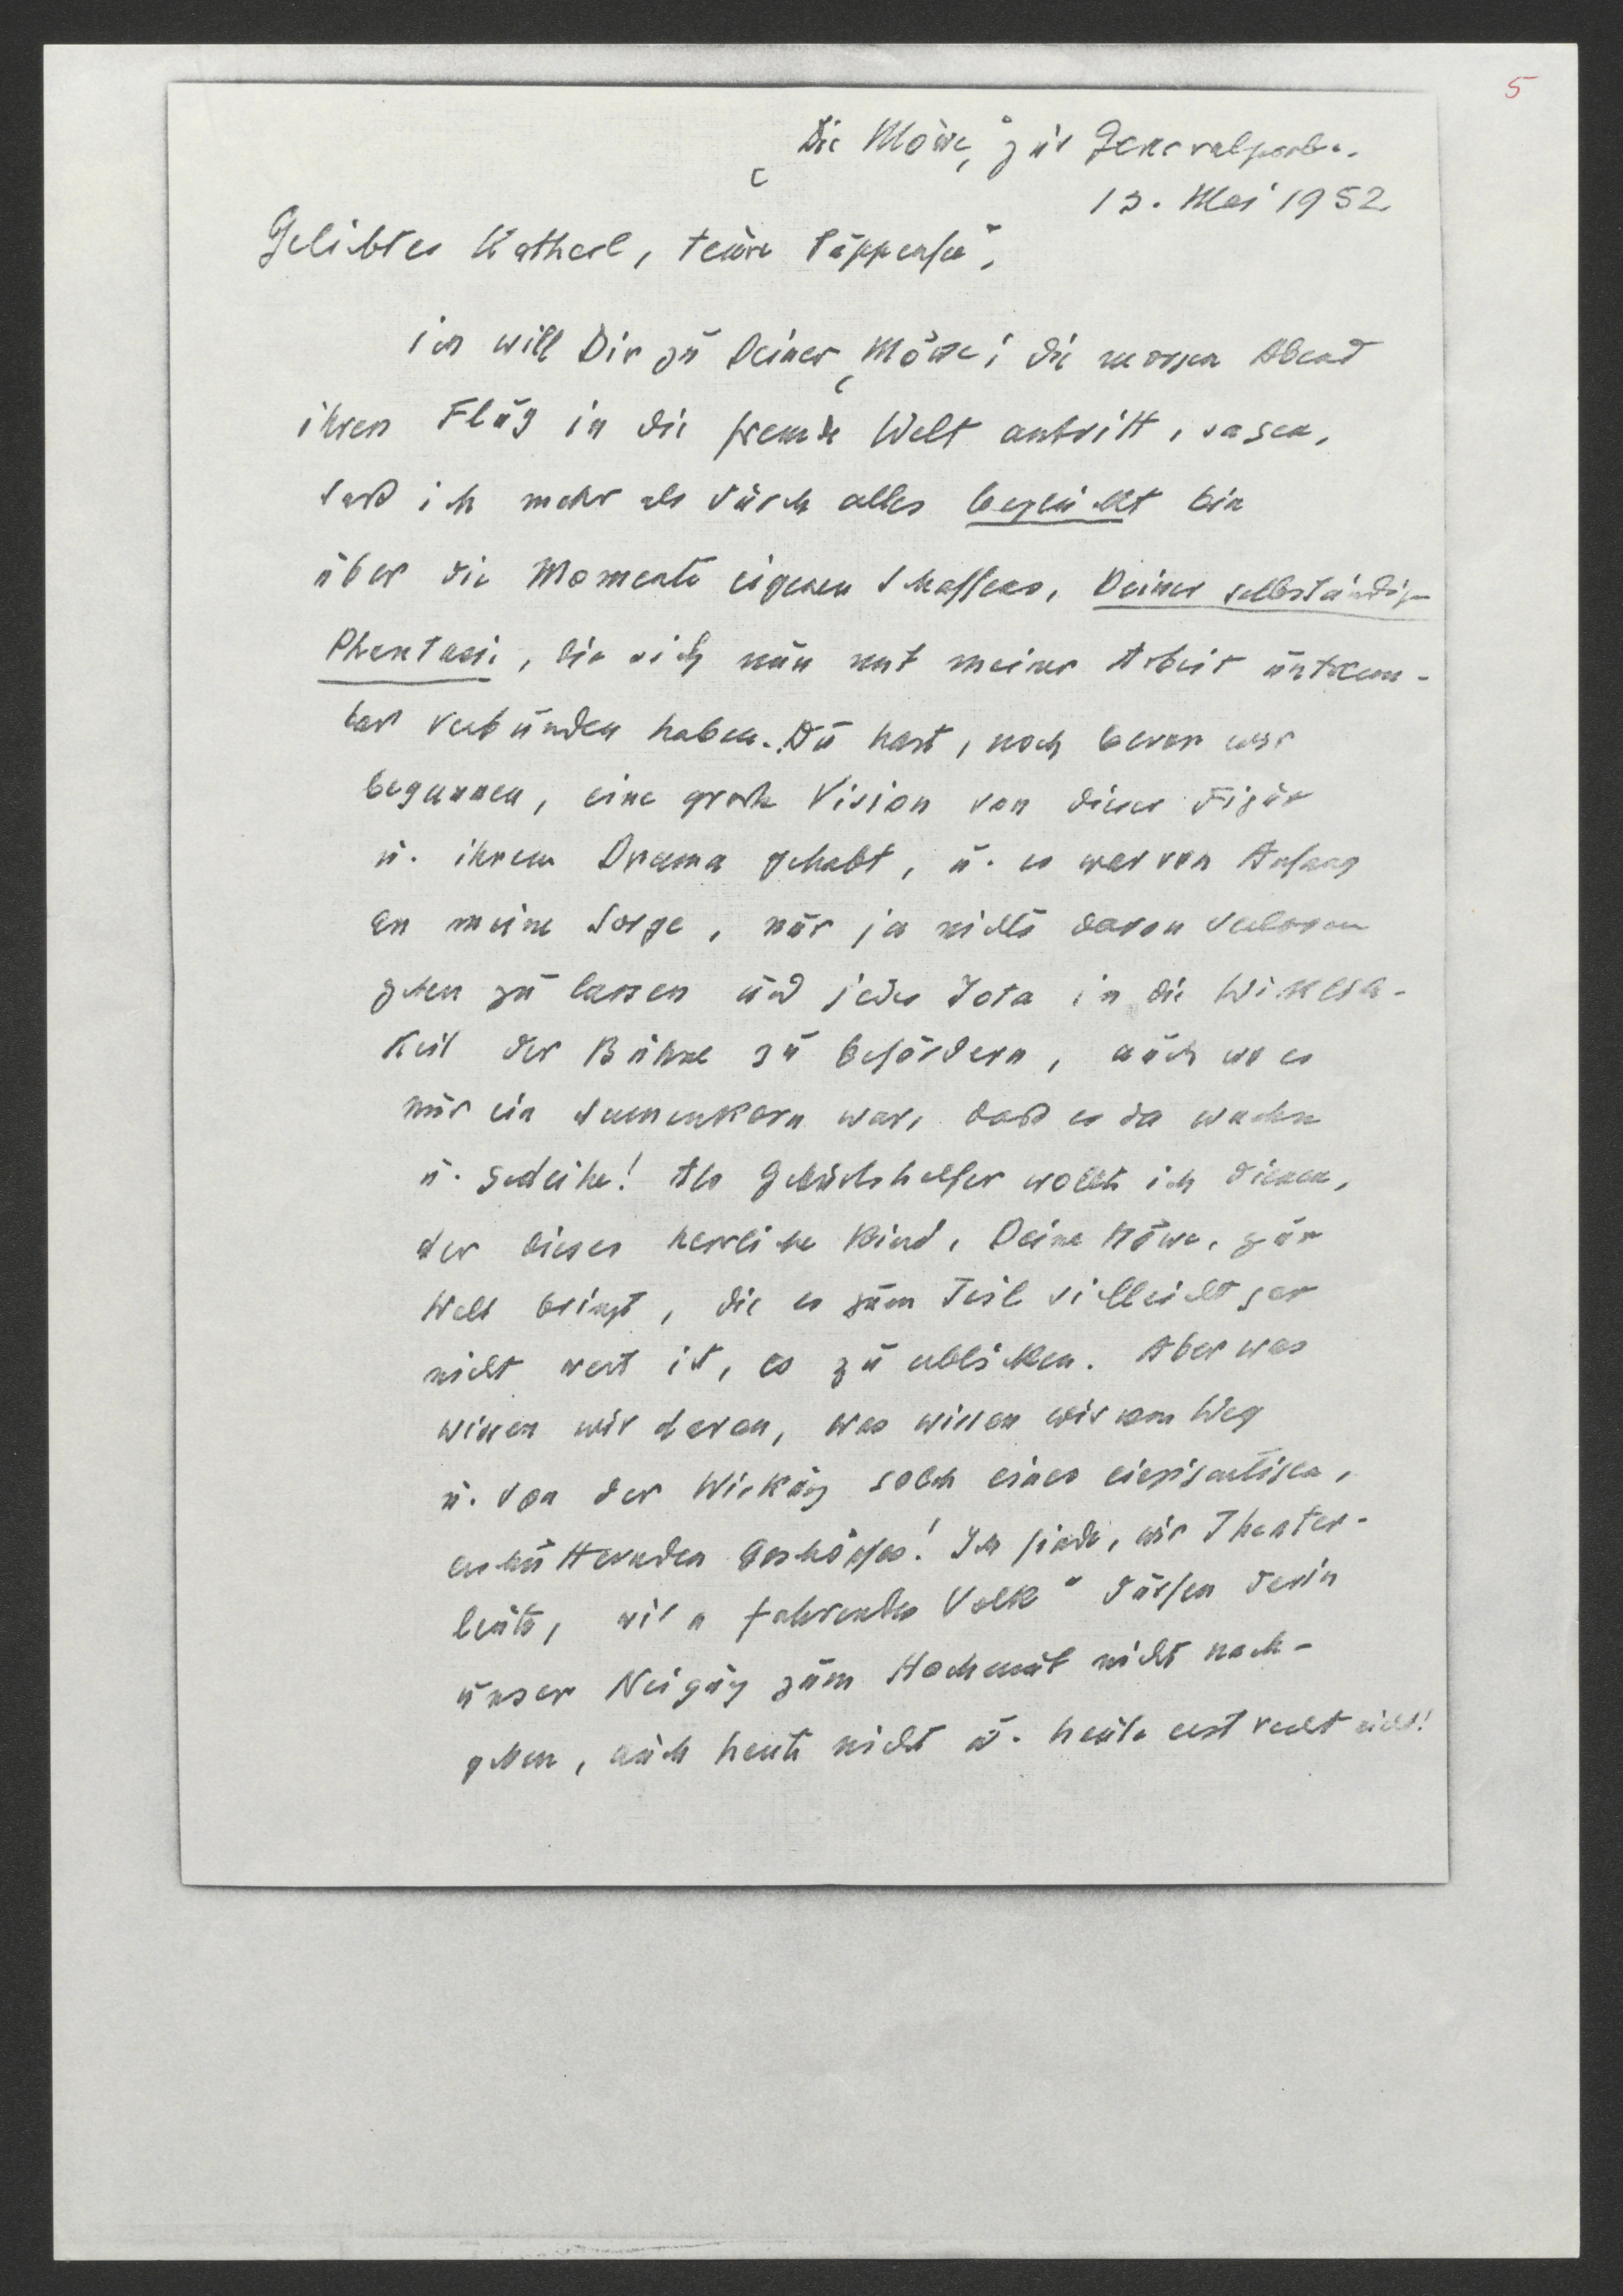 5
„Die Möwe“, zur Generalprobe.
13. Mai 1952
Geliebtes Katherl, teure Puppenfee,
ich will Dir zu Deiner „Möwe“, die morgen Abend
ihren Flug in die fremde Welt antritt, sagen,
daß ich mehr als durch alles beglückt bin
über die Momente eigenen Schaffens, Deiner selbständigen
Phantasie, die sich nun mit meiner Arbeit untrenn-
bar verbunden haben. Du hast, noch bevor wir
begannen, eine große Vision von dieser Figur
u. ihrem Drama gehabt, u. es war von Anfang
an meine Sorge, nur ja nichts davon verloren
gehen zu lassen und jedes Jota in die Wirklich-
keit der Bühne zu befördern, auch wo es
nur ein Samenkorn war, daß es da wachse
u. gedeihe! Als Geburtshelfer wollte ich dienen,
der dieses herrliche Kind, Deine Möwe, zur
Welt bringt, die es zum Teil vielleicht gar
nicht wert ist, es zu erblicken. Aber was
wissen wir davon, was wissen wir vom Weg
u. von der Wirkung solch eines einzigartigen,
erschütternden Geschöpfes! Ich finde, wir Theater-
leute, wir „fahrendes Volk“ dürfen darin
unser Neigung zum Hochmut nicht nach-
geben, auch heute nicht u. heute erst recht nicht!